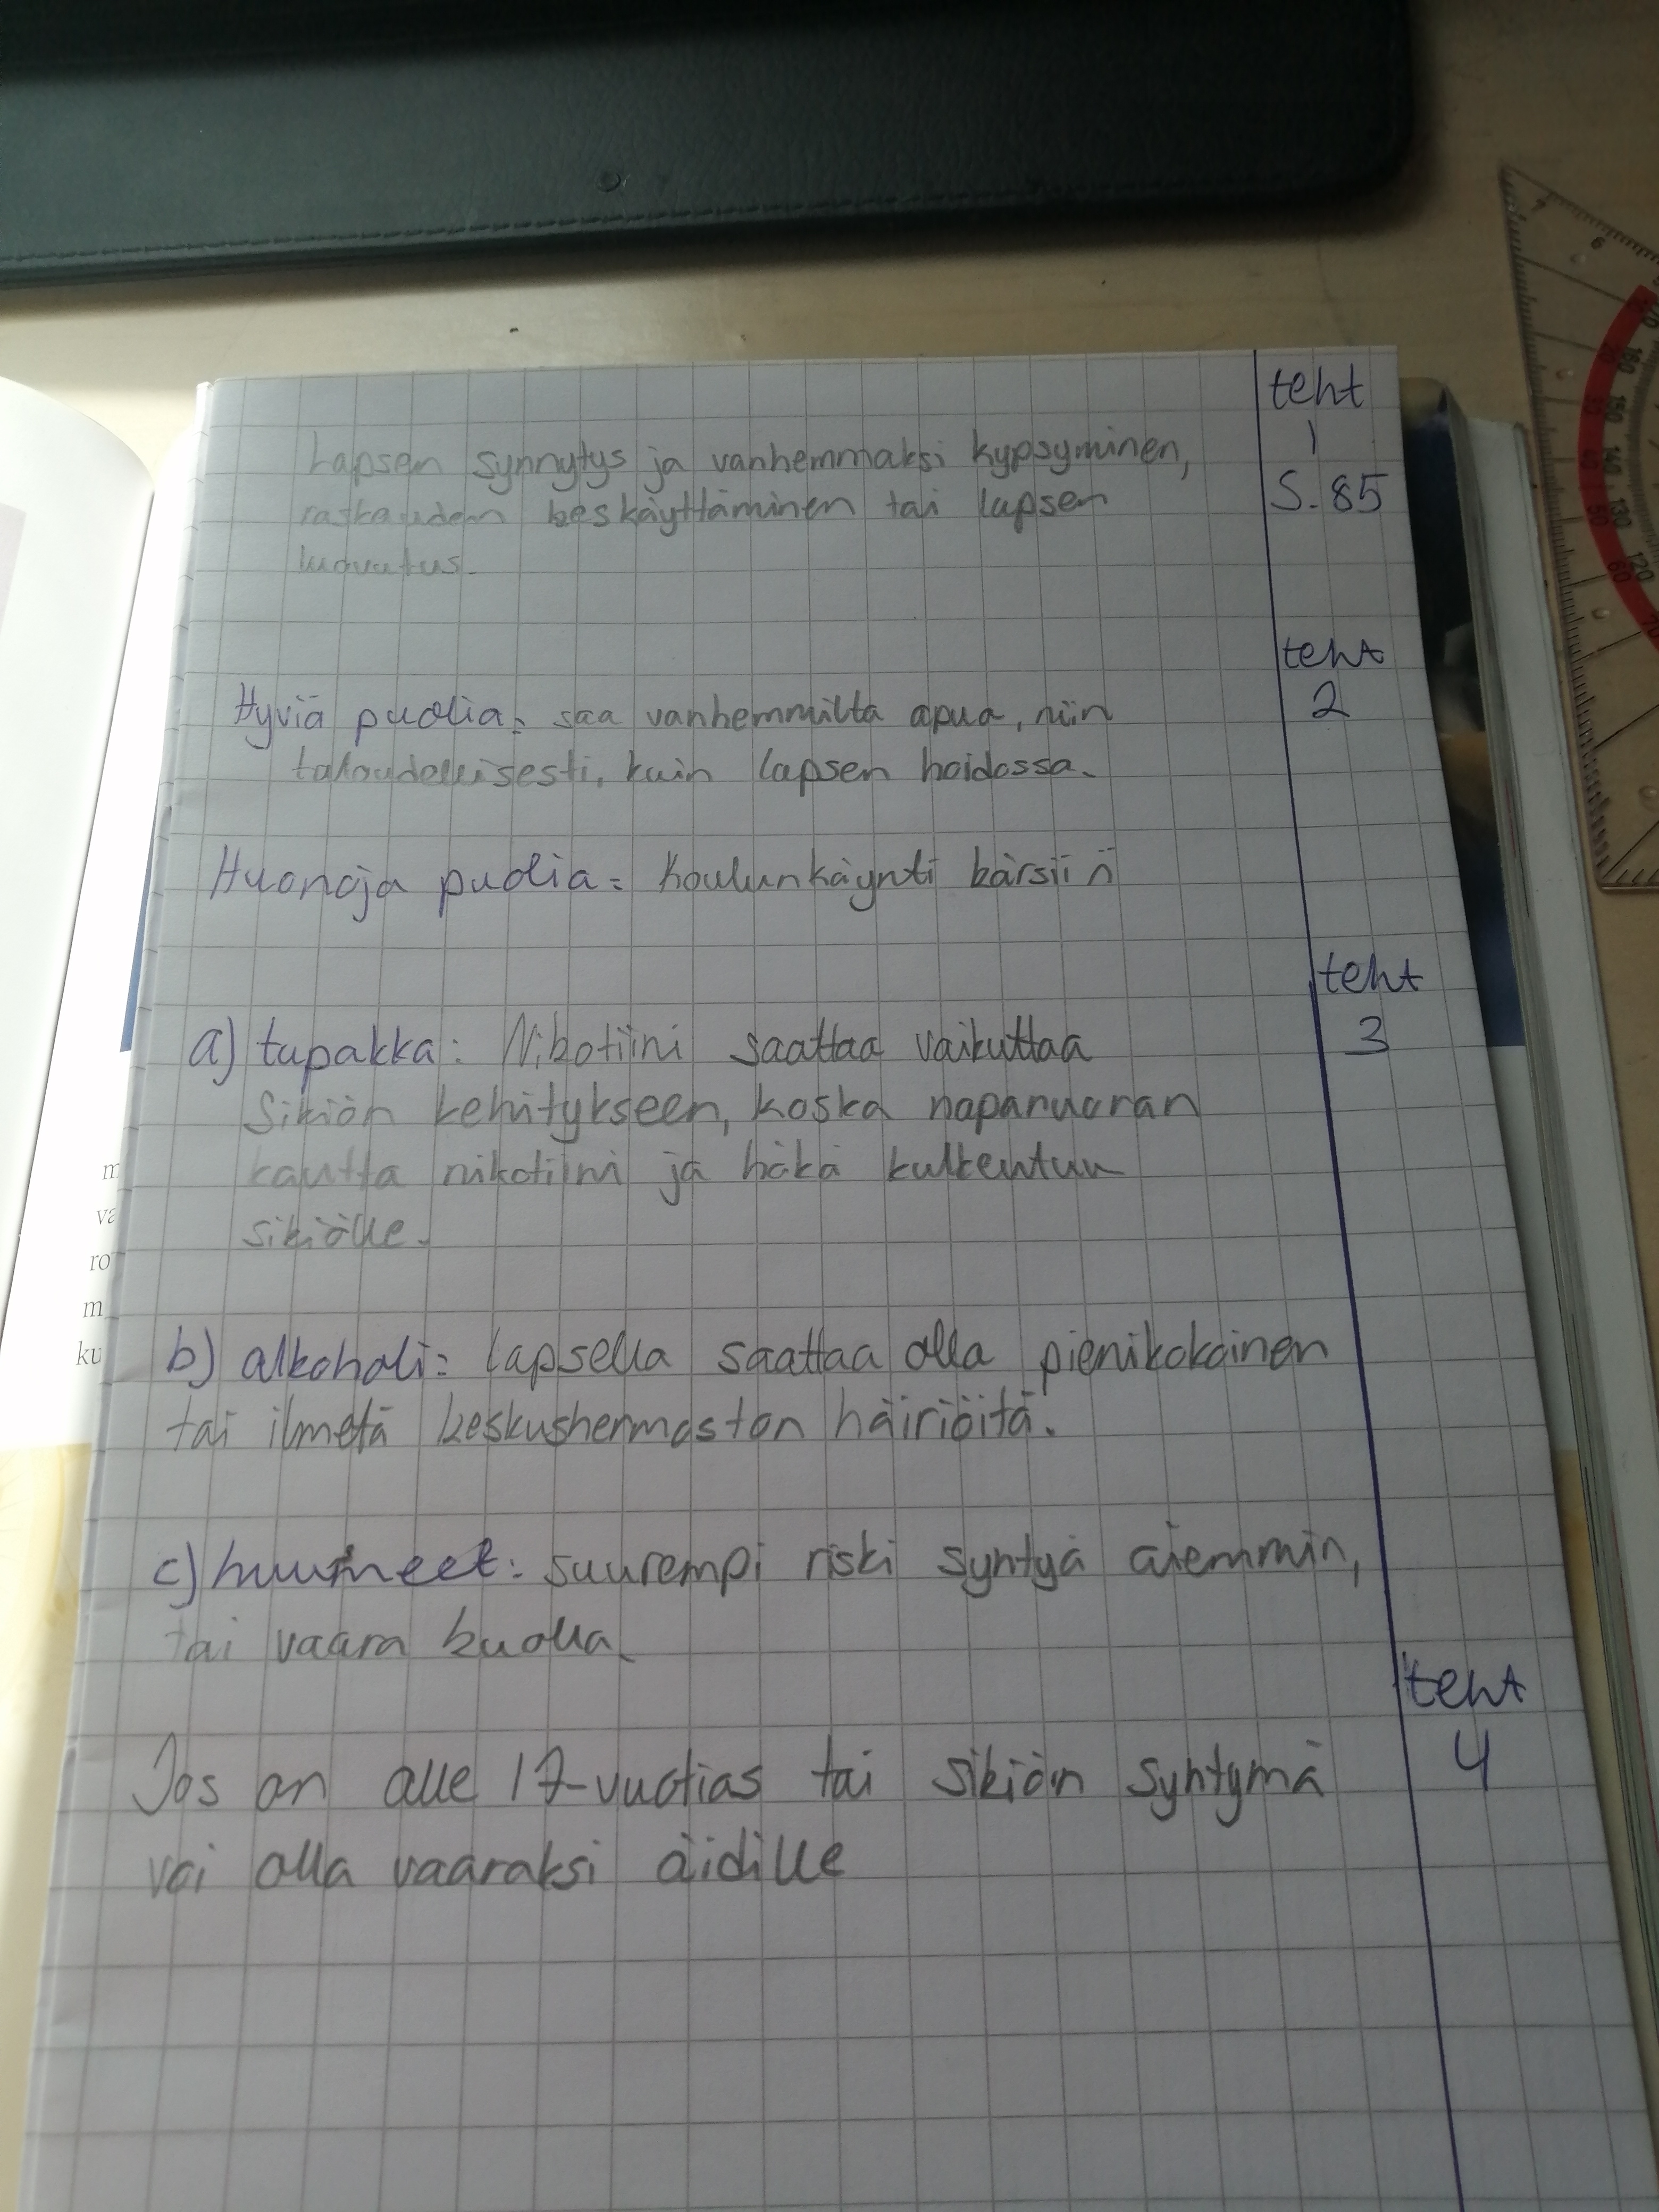 teht
1
S. 85
Lapsen synnytys ja vanhemmaksi kypsyminen,
raskauden keskäyttäminen tai lapsen
luovutus.
teht
2
Hyviä puolia: saa vanhemmilta apua, niin
taloudellisesti, kuin lapsen hoidossa.
Huonoja puolia: koulunkäynti kärsii
teht
3
a) tupakka: Nikotiini saattaa vaikuttaa
Sikiön kehitykseen, koska napanuoran
kautta nikotiini ja häkä kulkeutuu
sikiölle.
b) alkoholi: lapsella saattaa olla pienikokoinen
tai ilmetä keskushermoston häiriöitä.
c) huumeet: suurempi riski syntyä aiemmin,
tai vaara kuolla.
teht
4
Jos on alle 17-vuotias tai sikiön syntymä
voi olla vaaraksi äidille
m
va
ro
m
ku
7
6